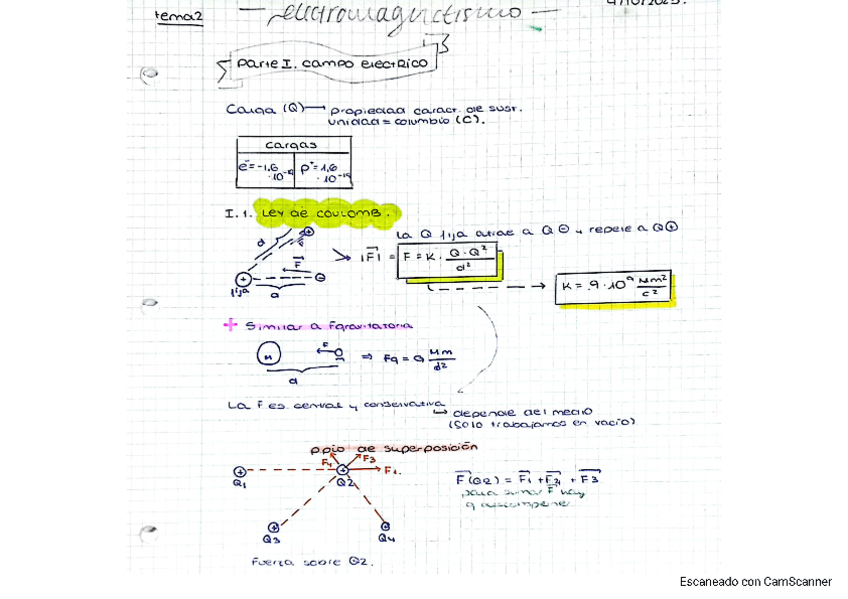 tema2
electromagnetismo
4/10/2023.
Parte I. campo electrico
Carga (Q) → propiedad caract. de sust.
unidad = columbio (C).
cargas
e⁻=-1,6 ·10⁻¹⁹ p⁺=1,6 ·10⁻¹⁹
I.1. Ley de coulomb.
La Q fija atrae a Q⊖ y repele a Q⊕
d
F
fija
d
|F⃗| = F = K · Q·Q² / d²
K = 9·10⁹ Nm²/c²
+ Similar a Fgravitatoria
M
F
m
d
⇒ Fg = G Mm/d²
La F es central y conservativa
↳ depende del medio
(solo trabajamos en vacío)
ppio de superposición
F4
F3
F1.
Q1
Q2
Q3
Q4
F⃗(Q2) = F⃗1 + F⃗2 + F⃗3
para sumar F⃗ hay
q descomponer
Fuerza sobre Q2.
Escaneado con CamScanner